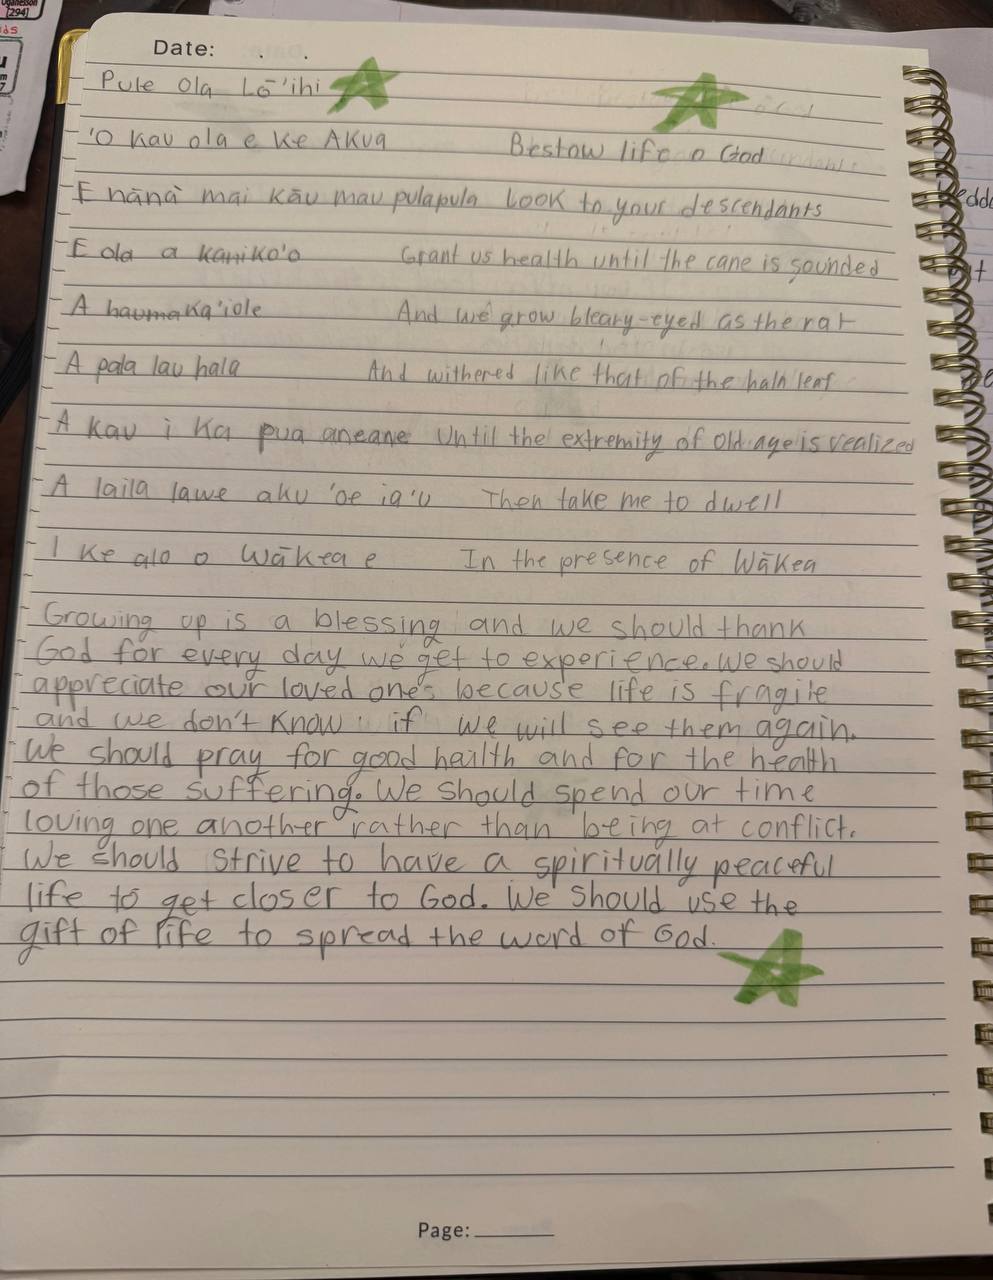 Date:
Pule Ola Lō'ihi
'O kau ola e ke AKua Bestow life o God
E nānà mai Kāu mau pulapula Look to your descendants
E ola a kaniko'o Grant us health until the cane is sounded
A haumaka'iole And we grow bleary-eyed as the rat
A pala lau hala And withered like that of the hala leaf
A kau i Ka pua aneane Until the extremity of old age is realized
A laila lawe aku 'oe ia'u Then take me to dwell
I Ke alo o Wākea e In the presence of Wākea
Growing up is a blessing and we should thank
God for every day we get to experience. We should
appreciate our loved one's because life is fragile
and we don't know if we will see them again.
We should pray for good heilth and for the health
of those suffering. We should spend our time
loving one another rather than being at conflict.
We should strive to have a spiritually peaceful
life to get closer to God. We should use the
gift of life to spread the word of God.
Page: